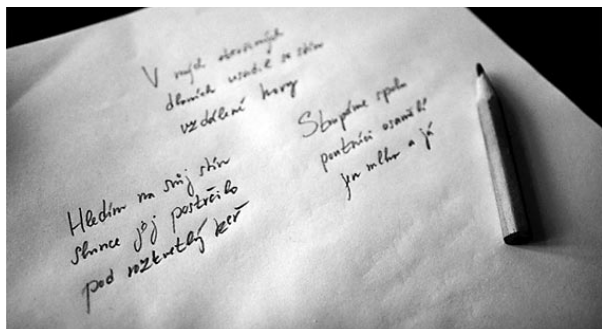 V mých otevřených
dlaních usadil se stín
vzdálené hory
Stoupáme spolu
poutníci osamělí
jen mlha a já
Hledím na svůj stín
slunce jej postrčilo
pod rozkvetlý keř